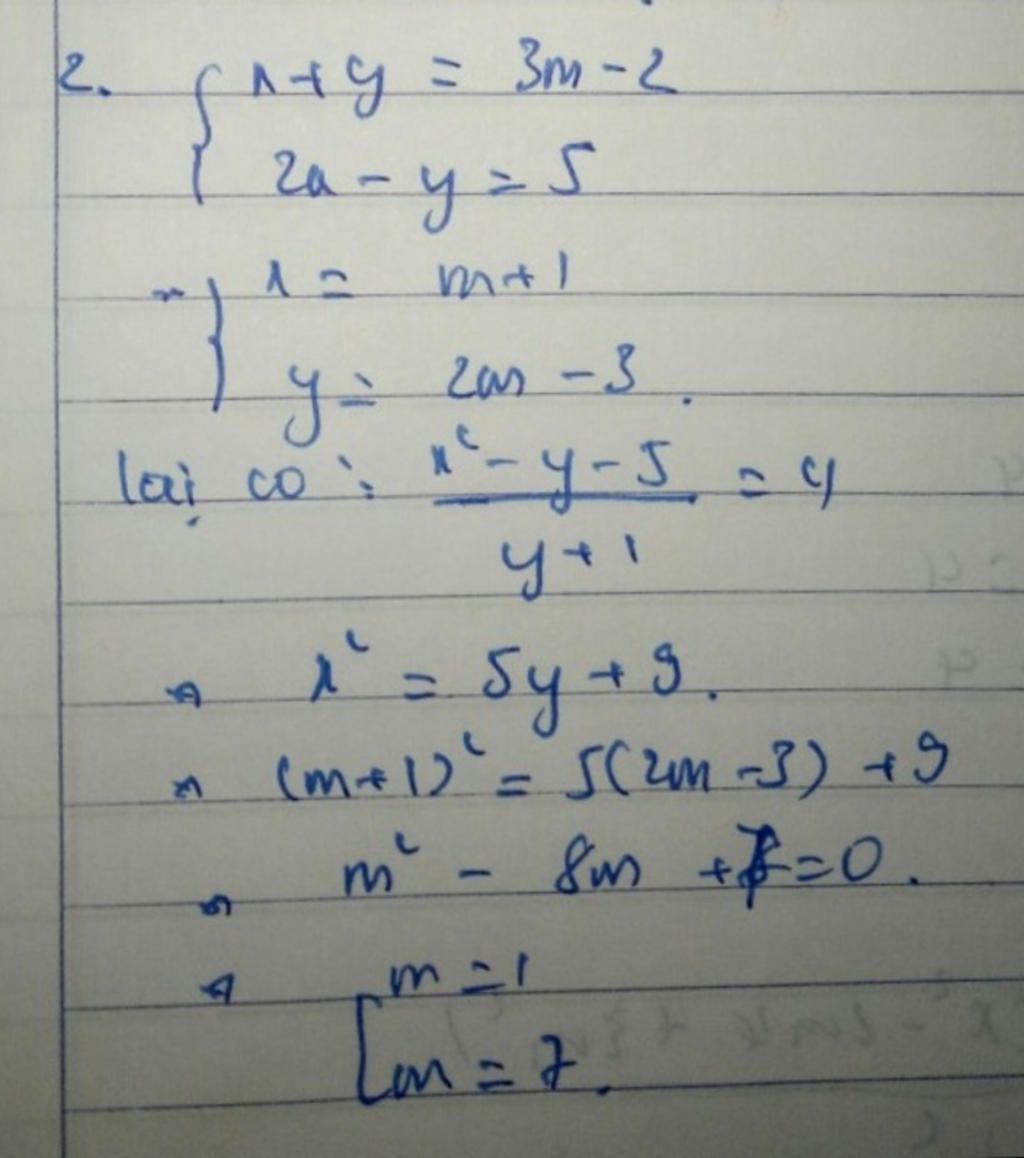 2. { x + y = 3m - 2
2x - y = 5
⇒ { x = m + 1
y = 2m - 3.
lại có: (x² - y - 5)/(y + 1) = 4
⇒ x² = 5y + 9.
⇒ (m + 1)² = 5(2m - 3) + 9
⇒ m² - 8m + 7 = 0.
⇒ [ m = 1
m = 7.